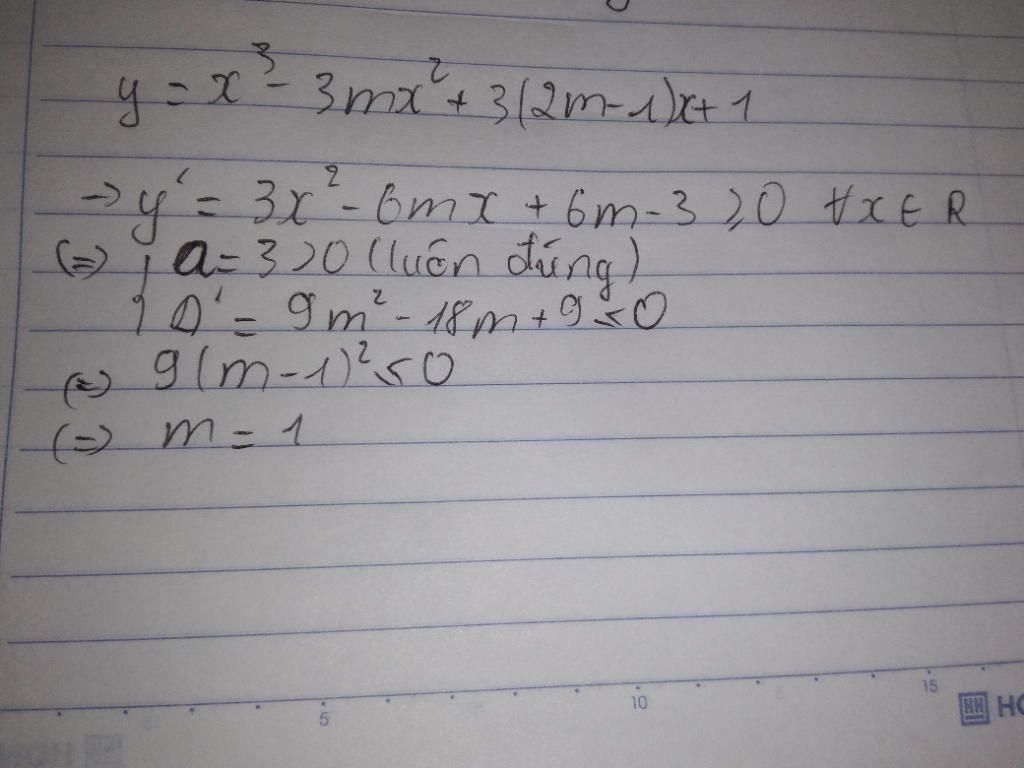 y = x³ - 3mx² + 3(2m-1)x + 1
→ y' = 3x² - 6mx + 6m - 3 ≥ 0 ∀x ∈ R
(=) { a = 3 > 0 (luôn đúng)
{ Δ' = 9m² - 18m + 9 ≤ 0
(=) 9(m-1)² ≤ 0
(=) m = 1
5 10 15
HO